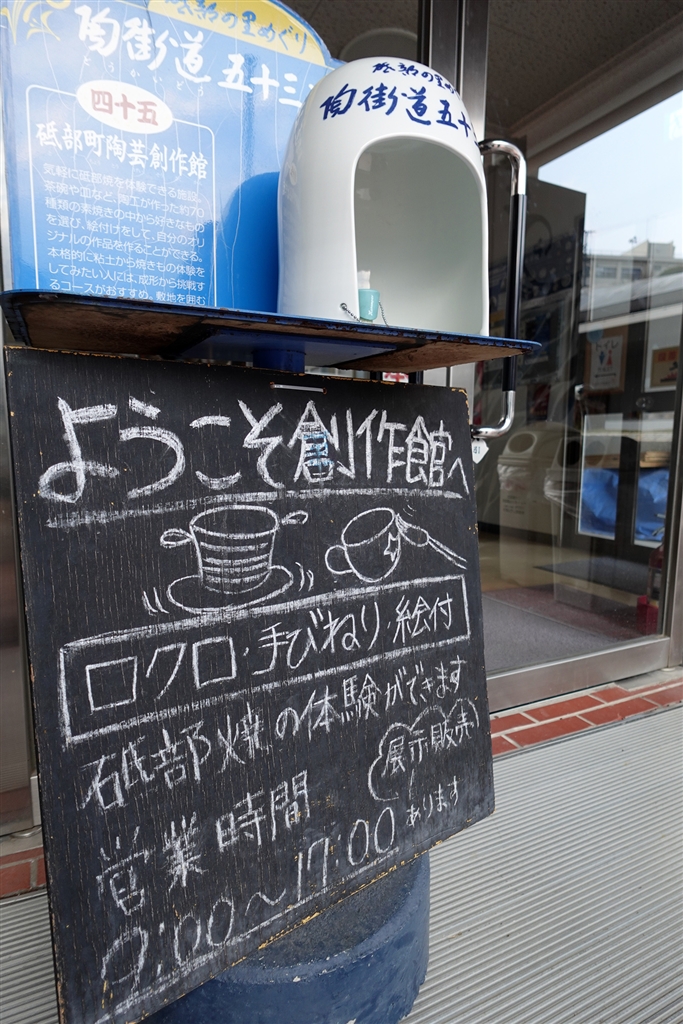 砥部の里めぐり
陶街道五十三
とうかいどう
四十五
砥部町陶芸創作館
気軽に砥部焼を体験できる施設。
茶碗や皿など、陶工が作った約70
種類の素焼きの中から好きなもの
を選び、絵付けをして、自分のオリ
ジナルの作品を作ることができる。
本格的に粘土から焼きもの体験を
してみたい人には、成形から挑戦す
るコースがおすすめ。敷地を囲む
砥部の里め
陶街道五十
ようこそ創作館へ
ロクロ・手びねり・絵付
砥部焼の体験ができます
展示販売
あります
営業時間
9:00~17:00